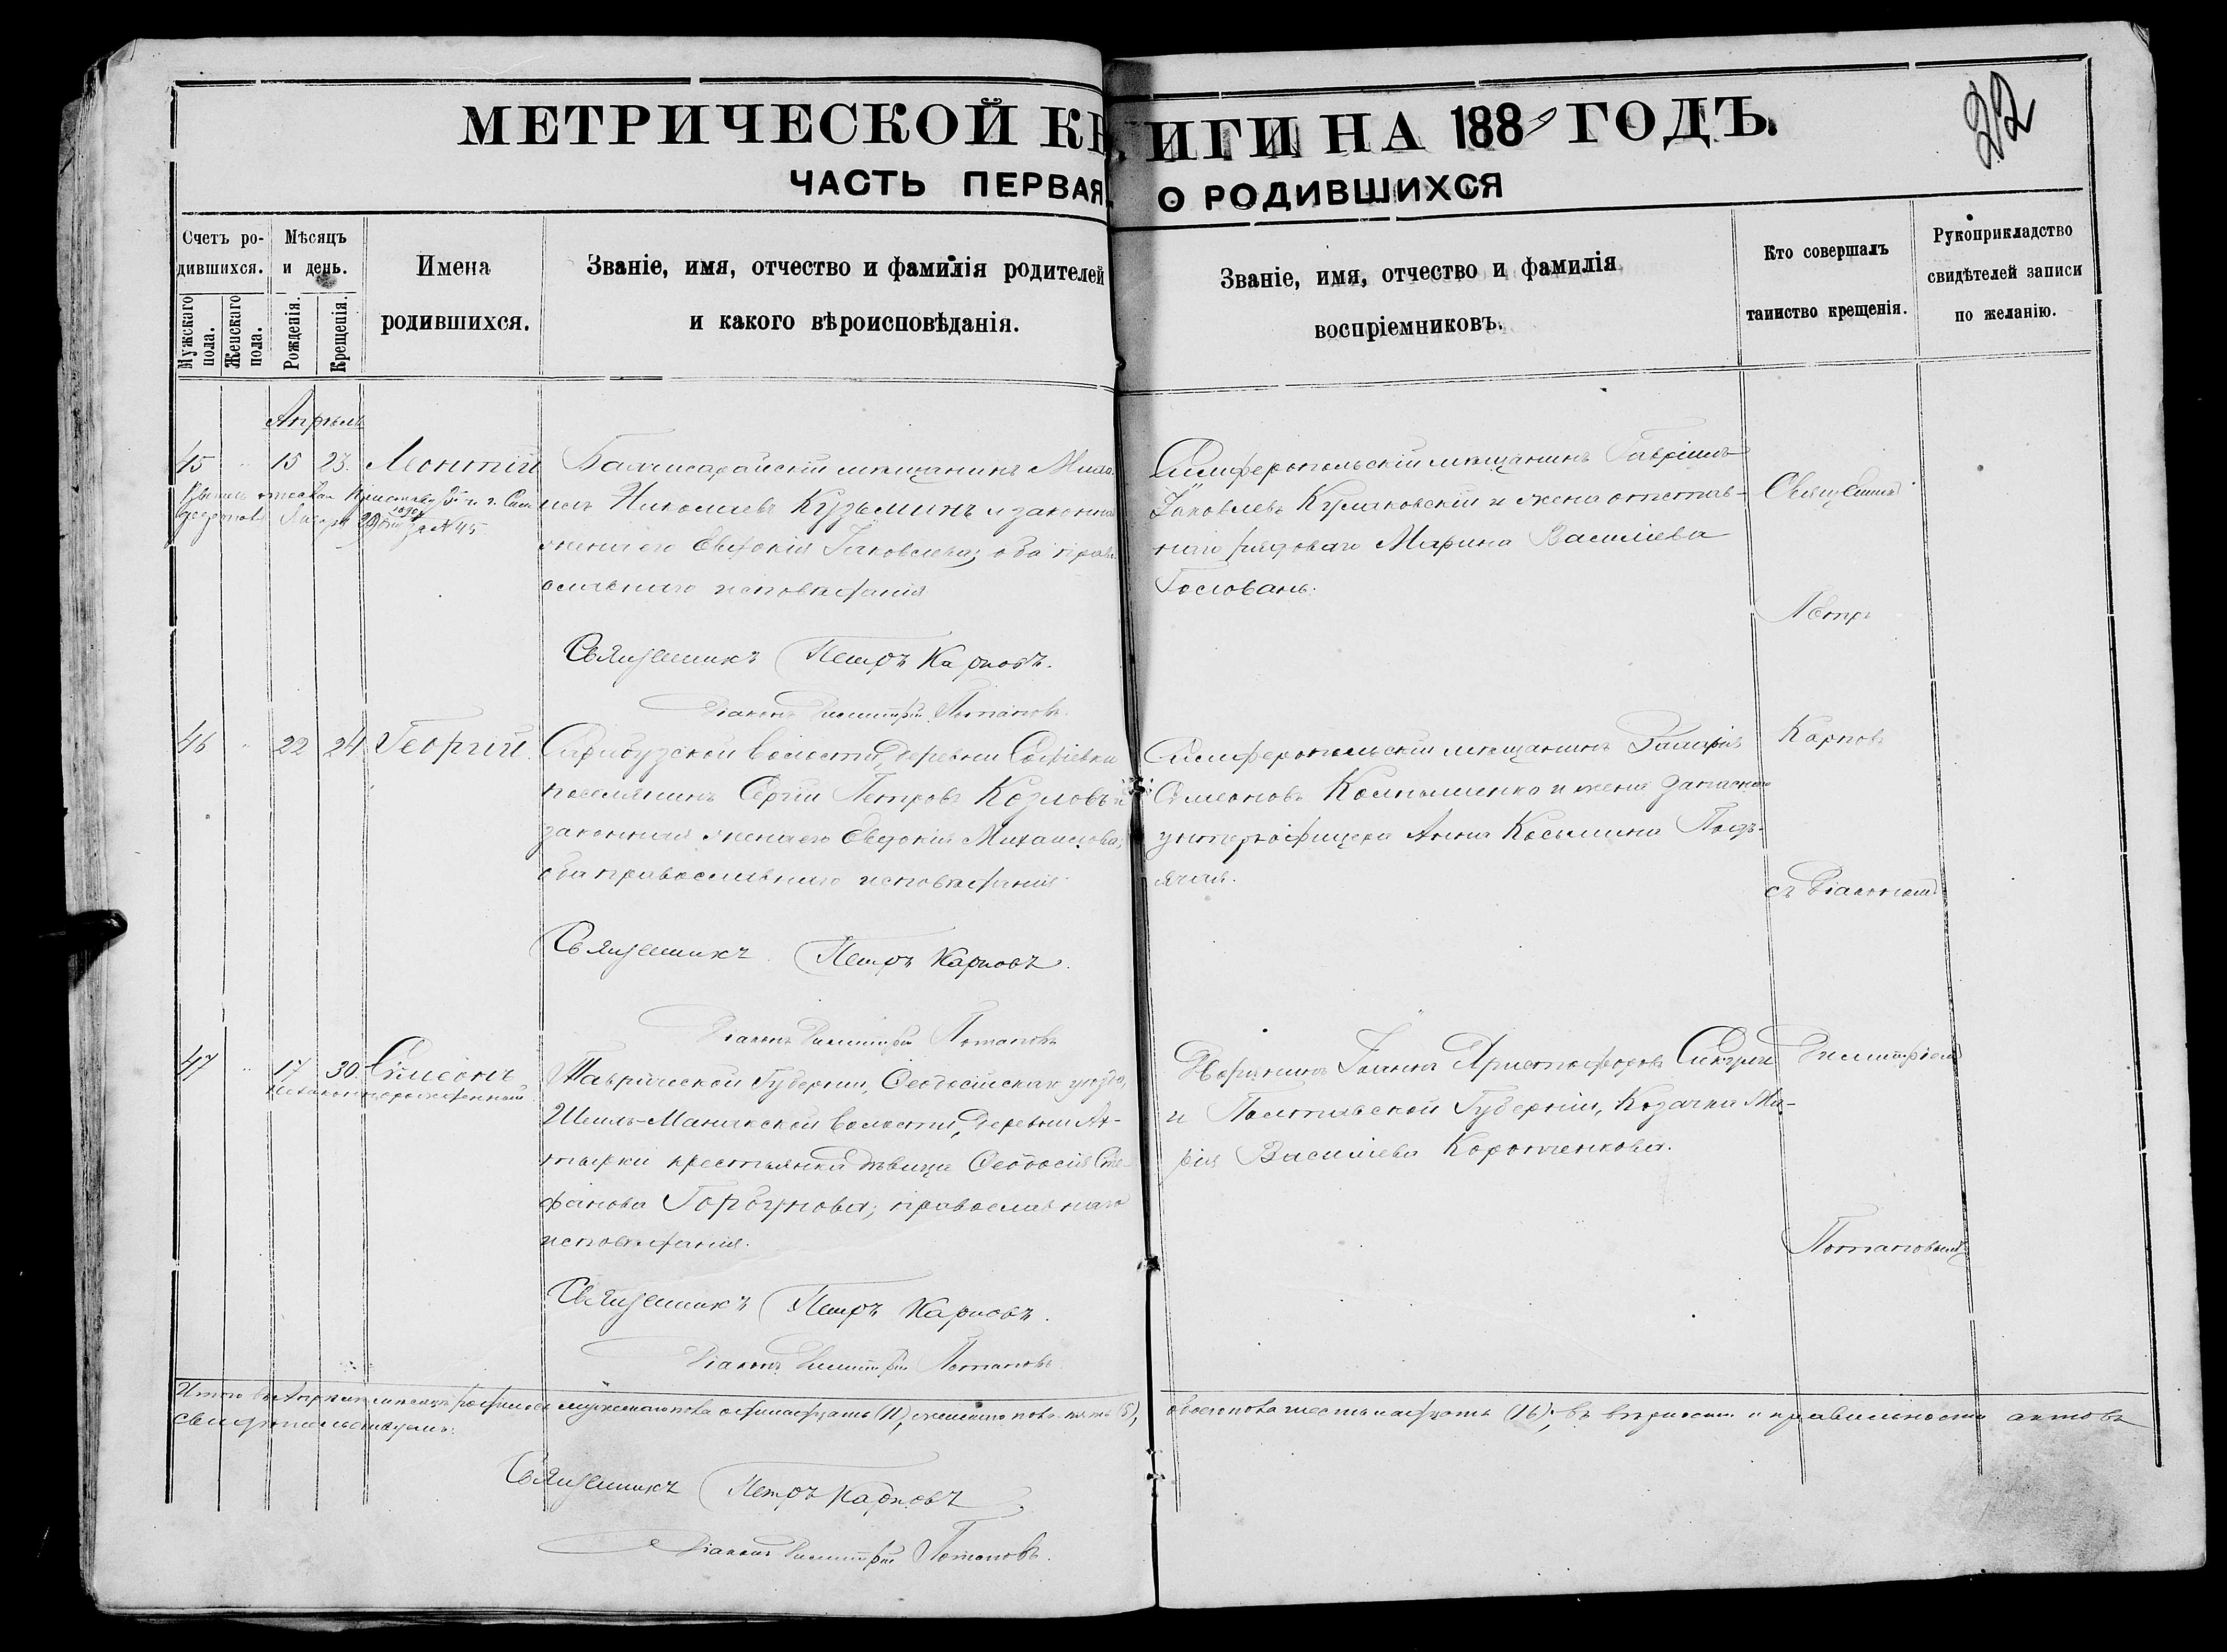 МЕТРИЧЕСКОЙ КНИГИ НА 188 ГОДЪ.
22
ЧАСТЬ ПЕРВАЯ, О РОДИВШИХСЯ
Счетъ родившихся.
Мужскаго пола.
Женскаго пола.
Мѣсяцъ и день.
Рожденія.
Крещенія.
Имена родившихся.
Званіе, имя, отчество и фамилія родителей
и какого вѣроисповѣданія.
Званіе, имя, отчество и фамилія
воспріемниковъ.
Кто совершалъ
таинство крещенія.
Рукоприкладство
свидѣтелей записи
по желанію.
Апрѣль
45 15 23. Леонтій
№ 45
Бахчисарайскій мѣщанинъ Миха-
илъ Николаевъ Кузьминъ и законная
жена его Евдокія Іаковлева; оба прав-
ославнаго исповѣданія
Священникъ Петръ Карповъ.
Діаконъ Димитрій Потаповъ.
Симферопольскій мѣщанинъ Гавріилъ
Іаковлевъ Куликовскій и жена отстав-
наго рядоваго Марина Василіева
Голованъ.
46 22 24 Георгій.
Сарабузской волости, деревни Софіевки
поселянинъ Сергій Петровъ Козловъ и
законная жена его Евдокія Михаилова;
оба православнаго исповѣданія
Священникъ Петръ Карповъ.
Діаконъ Димитрій Потаповъ
Симферопольскій мѣщанинъ
Симеоновъ и жена запаснаго
унтеръ-офицера Анна Косьмина Подъ-
ячая.
47 17 30. Симеонъ
незаконнорожденный.
Таврической Губерніи, Ѳеодосійскаго уѣзда,
волости, деревни
крестьянка дѣвица Ѳеодосія Сте-
фанова Горбунова; православнаго
исповѣданія.
Священникъ Петръ Карповъ.
Діаконъ Димитрій Потаповъ
Дворянинъ Іоаннъ Христофоровъ
и Полтавской Губерніи, Козачка Ма-
рія Василіева Коротченкова.
Священникъ
Петръ
Карповъ
съ Діакономъ
Димитріемъ
Потаповымъ
Итого въ Апрѣлѣ мѣсяцѣ родилось мужескаго пола одинадцать (11), женскаго пола пять (5), обоего пола шестьнадцать (16); въ вѣрности и правильности актовъ
свидѣтельствуемъ:
Священникъ Петръ Карповъ
Діаконъ Димитрій Потаповъ.